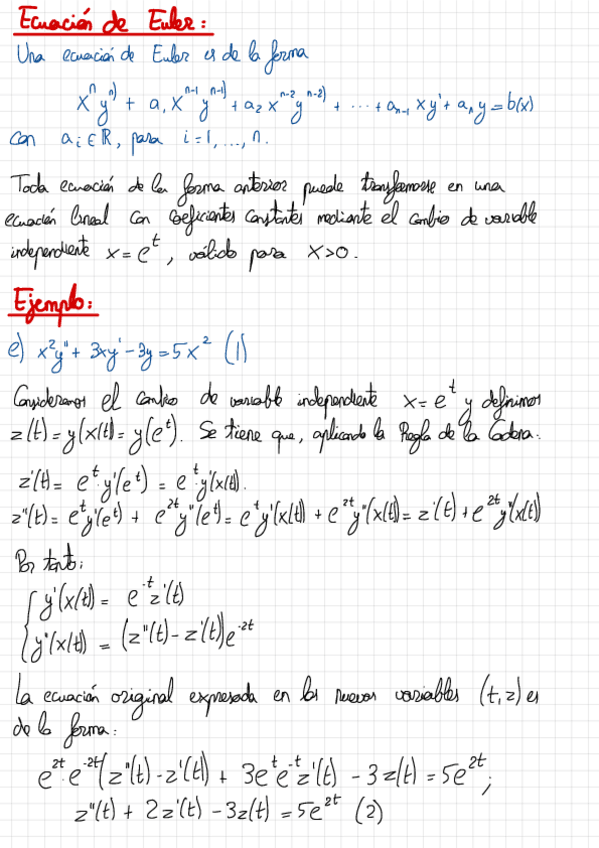 Ecuación de Euler:
Una ecuación de Euler es de la forma
xⁿy⁽ⁿ⁾ + a₁xⁿ⁻¹yⁿ⁻¹⁾ + a₂xⁿ⁻²yⁿ⁻²⁾ + ... + aₙ₋₁xy' + aₙy = b(x)
con aᵢ ∈ ℝ, para i = 1, ..., n.
Toda ecuación de la forma anterior puede transformarse en una
ecuación lineal con coeficientes constantes mediante el cambio de variable
independiente x = eᵗ, válido para x>0.
Ejemplo:
e) x²y'' + 3xy' - 3y = 5x² (1)
Consideramos el cambio de variable independiente x = eᵗ y definimos
z(t) = y(x(t)) = y(eᵗ). Se tiene que, aplicando la Regla de la Cadena:
z'(t) = eᵗ·y'(eᵗ) = eᵗ·y'(x(t)).
z''(t) = eᵗy'(eᵗ) + e²ᵗy''(eᵗ) = eᵗy'(x(t)) + e²ᵗy''(x(t)) = z'(t) + e²ᵗy''(x(t))
Por tanto:
y'(x(t)) = e⁻ᵗz'(t)
y''(x(t)) = (z''(t) - z'(t))e⁻²ᵗ
La ecuación original expresada en las nuevas variables (t,z) es
de la forma:
e²ᵗ·e⁻²ᵗ(z''(t) - z'(t)) + 3eᵗe⁻ᵗz'(t) - 3z(t) = 5e²ᵗ;
z''(t) + 2z'(t) - 3z(t) = 5e²ᵗ (2)